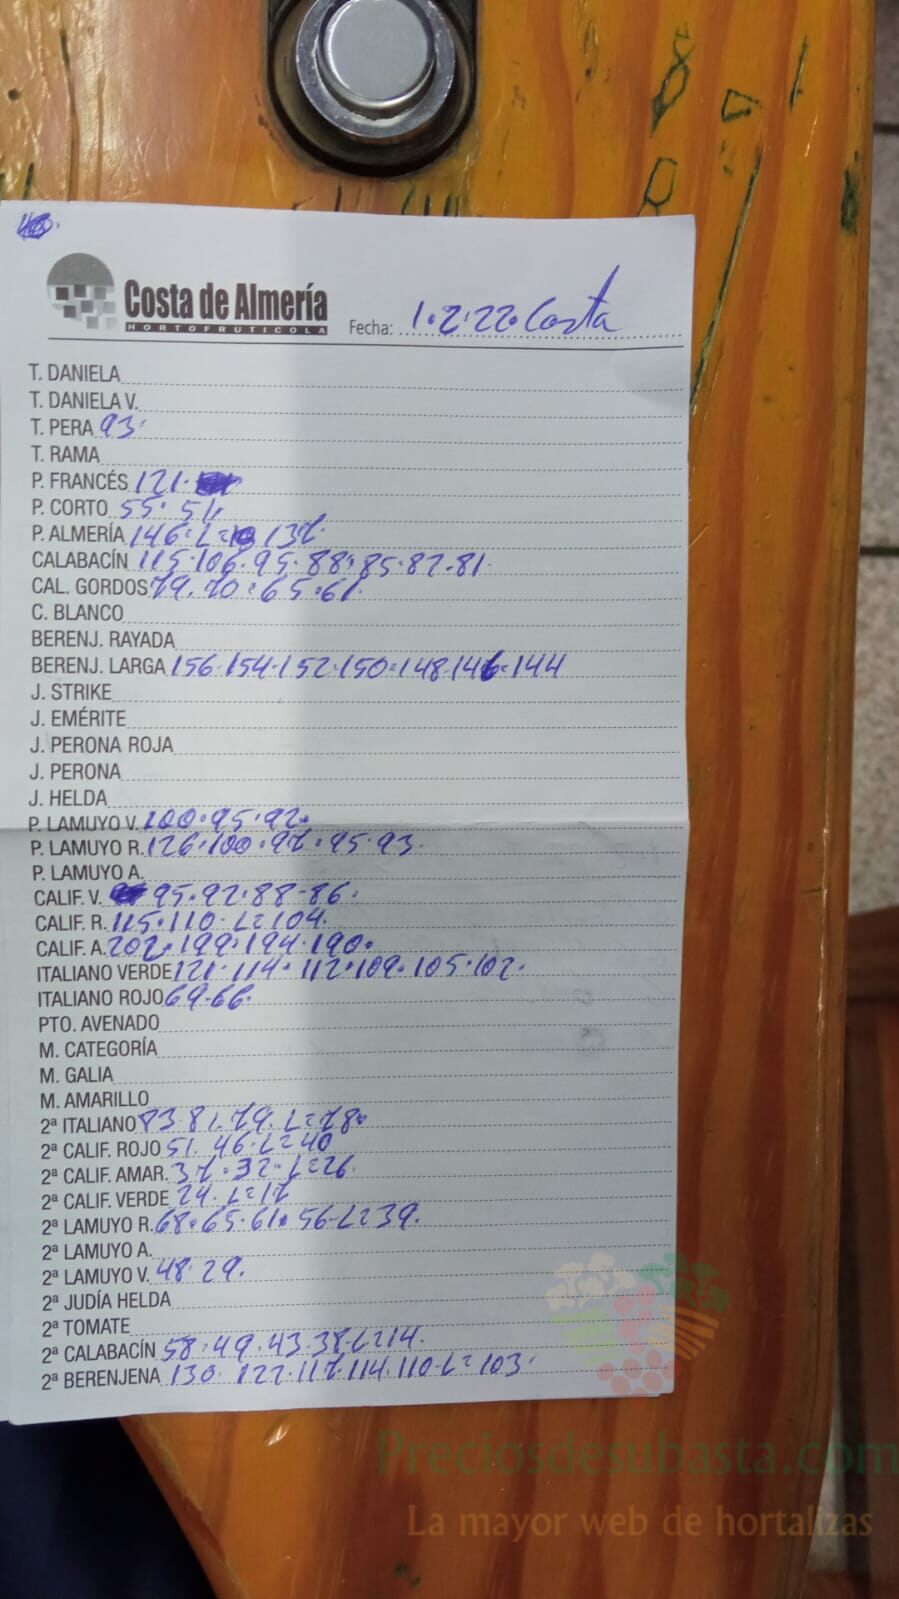 Costa de Almería
HORTOFRUTICOLA
Fecha: 1.2.22. Costa
T. DANIELA
T. DANIELA V.
T. PERA 93.
T. RAMA
P. FRANCÉS 121.
P. CORTO 55. 51.
P. ALMERÍA 146. L= 137.
CALABACÍN 115.106.95.88.85.82.81.
CAL. GORDOS 79.70.65.61.
C. BLANCO
BERENJ. RAYADA
BERENJ. LARGA 156.154.152.150.148.146.144
J. STRIKE
J. EMÉRITE
J. PERONA ROJA
J. PERONA
J. HELDA
P. LAMUYO V. 100.95.92.
P. LAMUYO R. 126.100.97.95.93.
P. LAMUYO A.
CALIF. V. 95.92.88-86.
CALIF. R. 115.110. L=104.
CALIF. A. 202.199.194.190.
ITALIANO VERDE 121.114.112.109.105.102.
ITALIANO ROJO 69.66.
PTO. AVENADO
M. CATEGORÍA
M. GALIA
M. AMARILLO
2ª ITALIANO 83.81.79. L=78.
2ª CALIF. ROJO 51. 46. L=40
2ª CALIF. AMAR. 37.32. L=26.
2ª CALIF. VERDE 24. L=17
2ª LAMUYO R. 68.65.61.56-L=39.
2ª LAMUYO A.
2ª LAMUYO V. 48.29.
2ª JUDÍA HELDA
2ª TOMATE
2ª CALABACÍN 58.49.43.38. L=14.
2ª BERENJENA 130. 122.117.114.110. L=103.
Preciosdesubasta.com
La mayor web de hortalizas